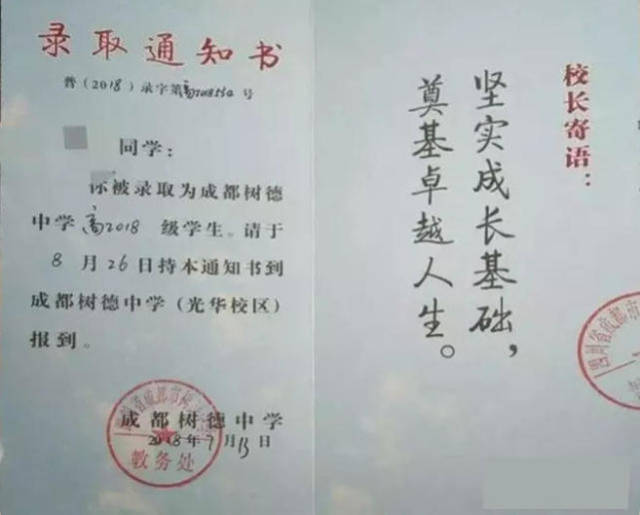 录取通知书
普(2018)录字第高2018554号
同学:
你被录取为成都树德
中学高2018级学生。请于
8月26日持本通知书到
成都树德中学(光华校区)
报到。
成都树德中学
2018年7月13日
教务处
校长寄语:
坚实成长基础,
奠基卓越人生。
四川省成都市